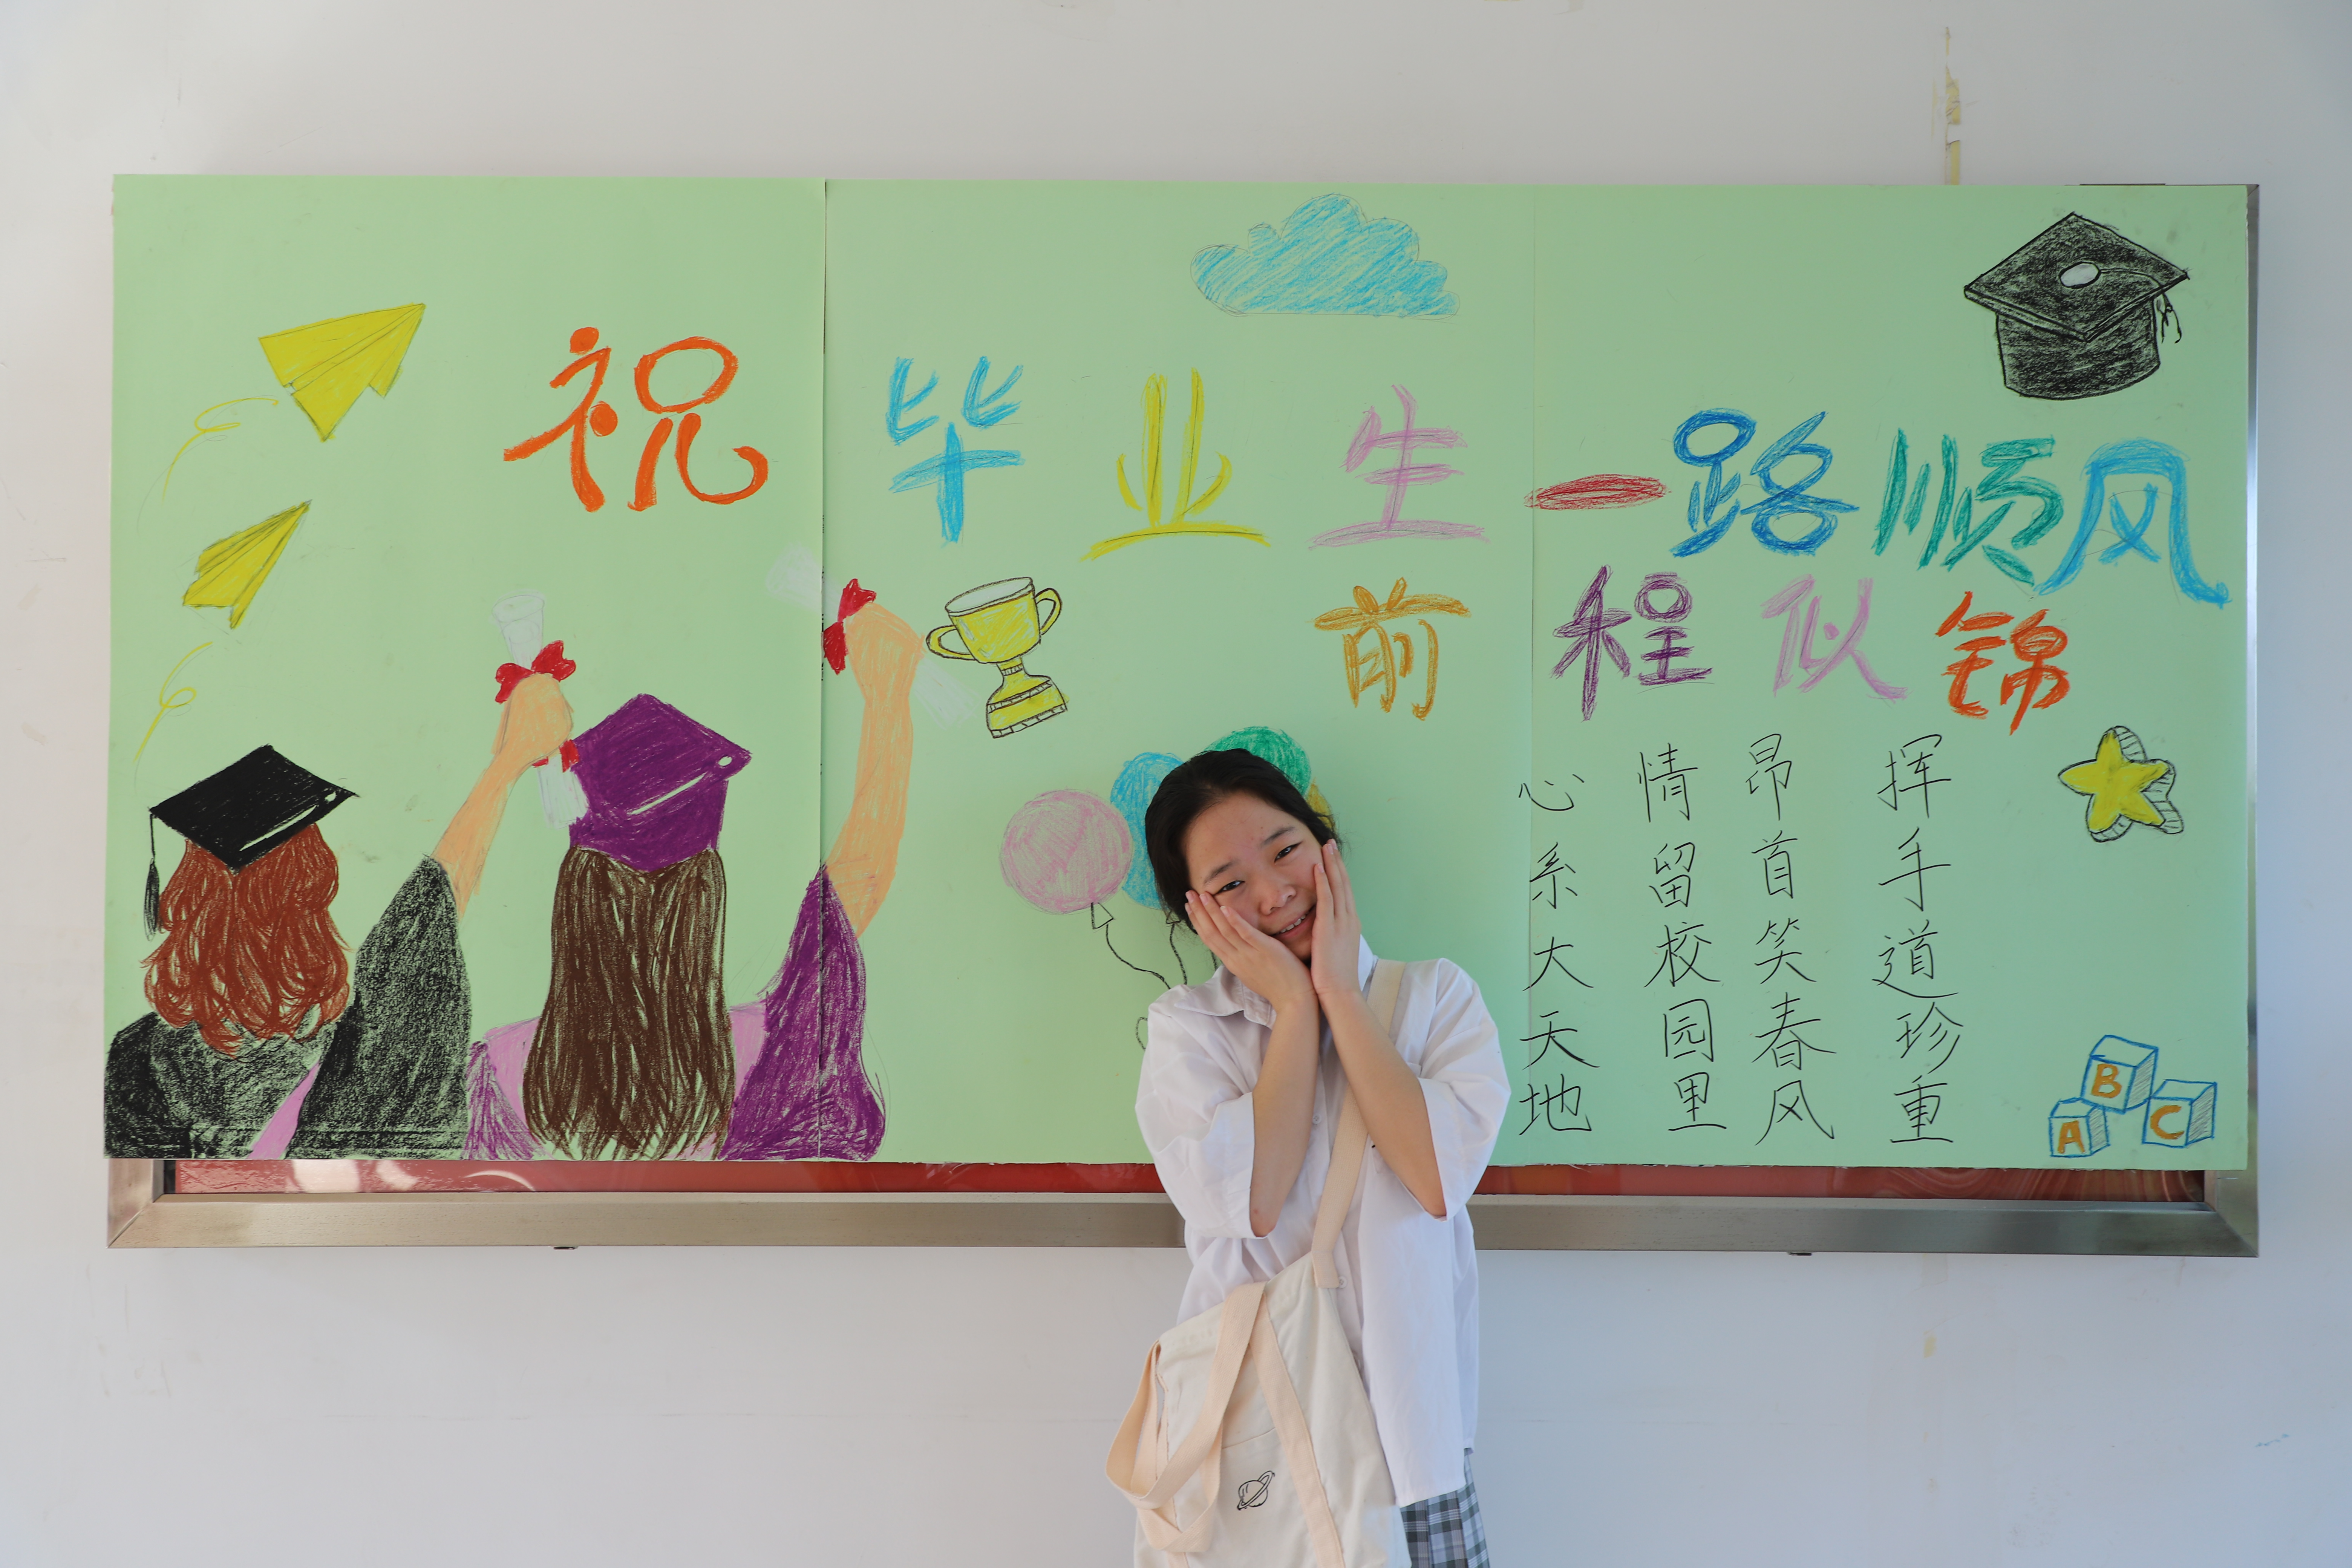 祝毕业生一路顺风
前程似锦
挥手道珍重
昂首笑春风
情留校园里
心系大天地
B
A C